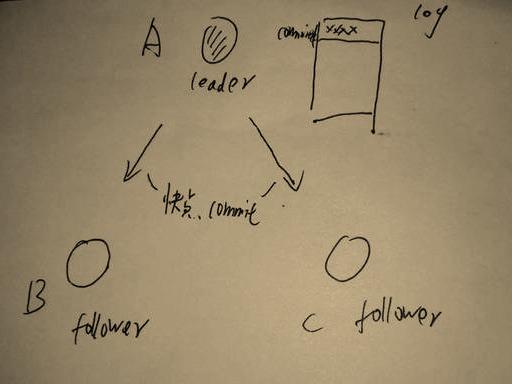 A
leader
commit
xxxx
log
快点、commit
B
follower
C
follower